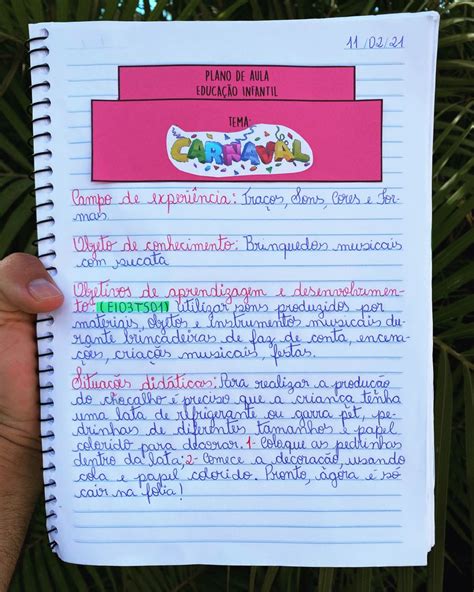 11/02/21
PLANO DE AULA
EDUCAÇÃO INFANTIL
TEMA:
CARNAVAL
Campo de experiência: Traços, Sons, Cores e For-
mas.
Objeto de conhecimento: Brinquedos musicais
com sucata
Objetivos de aprendizagem e desenvolvimen-
to: (EI03TS01) utilizar sons produzidos por
materiais, objetos e instrumentos musicais du-
rante brincadeiras de faz de conta, encena-
ções, criações musicais, festas.
Situações didáticas: Para realizar a produção
do chocalho é preciso que a criança tenha
uma lata de refrigerante ou garra pět, pe-
drinhas de diferentes tamanhos e papel
colorido para decorar. 1- Coloque as pedrinhas
dentro da lata; 2- Comece a decoração, usando
cola e papel colorido. Pronto, agora é só
cair na folia!